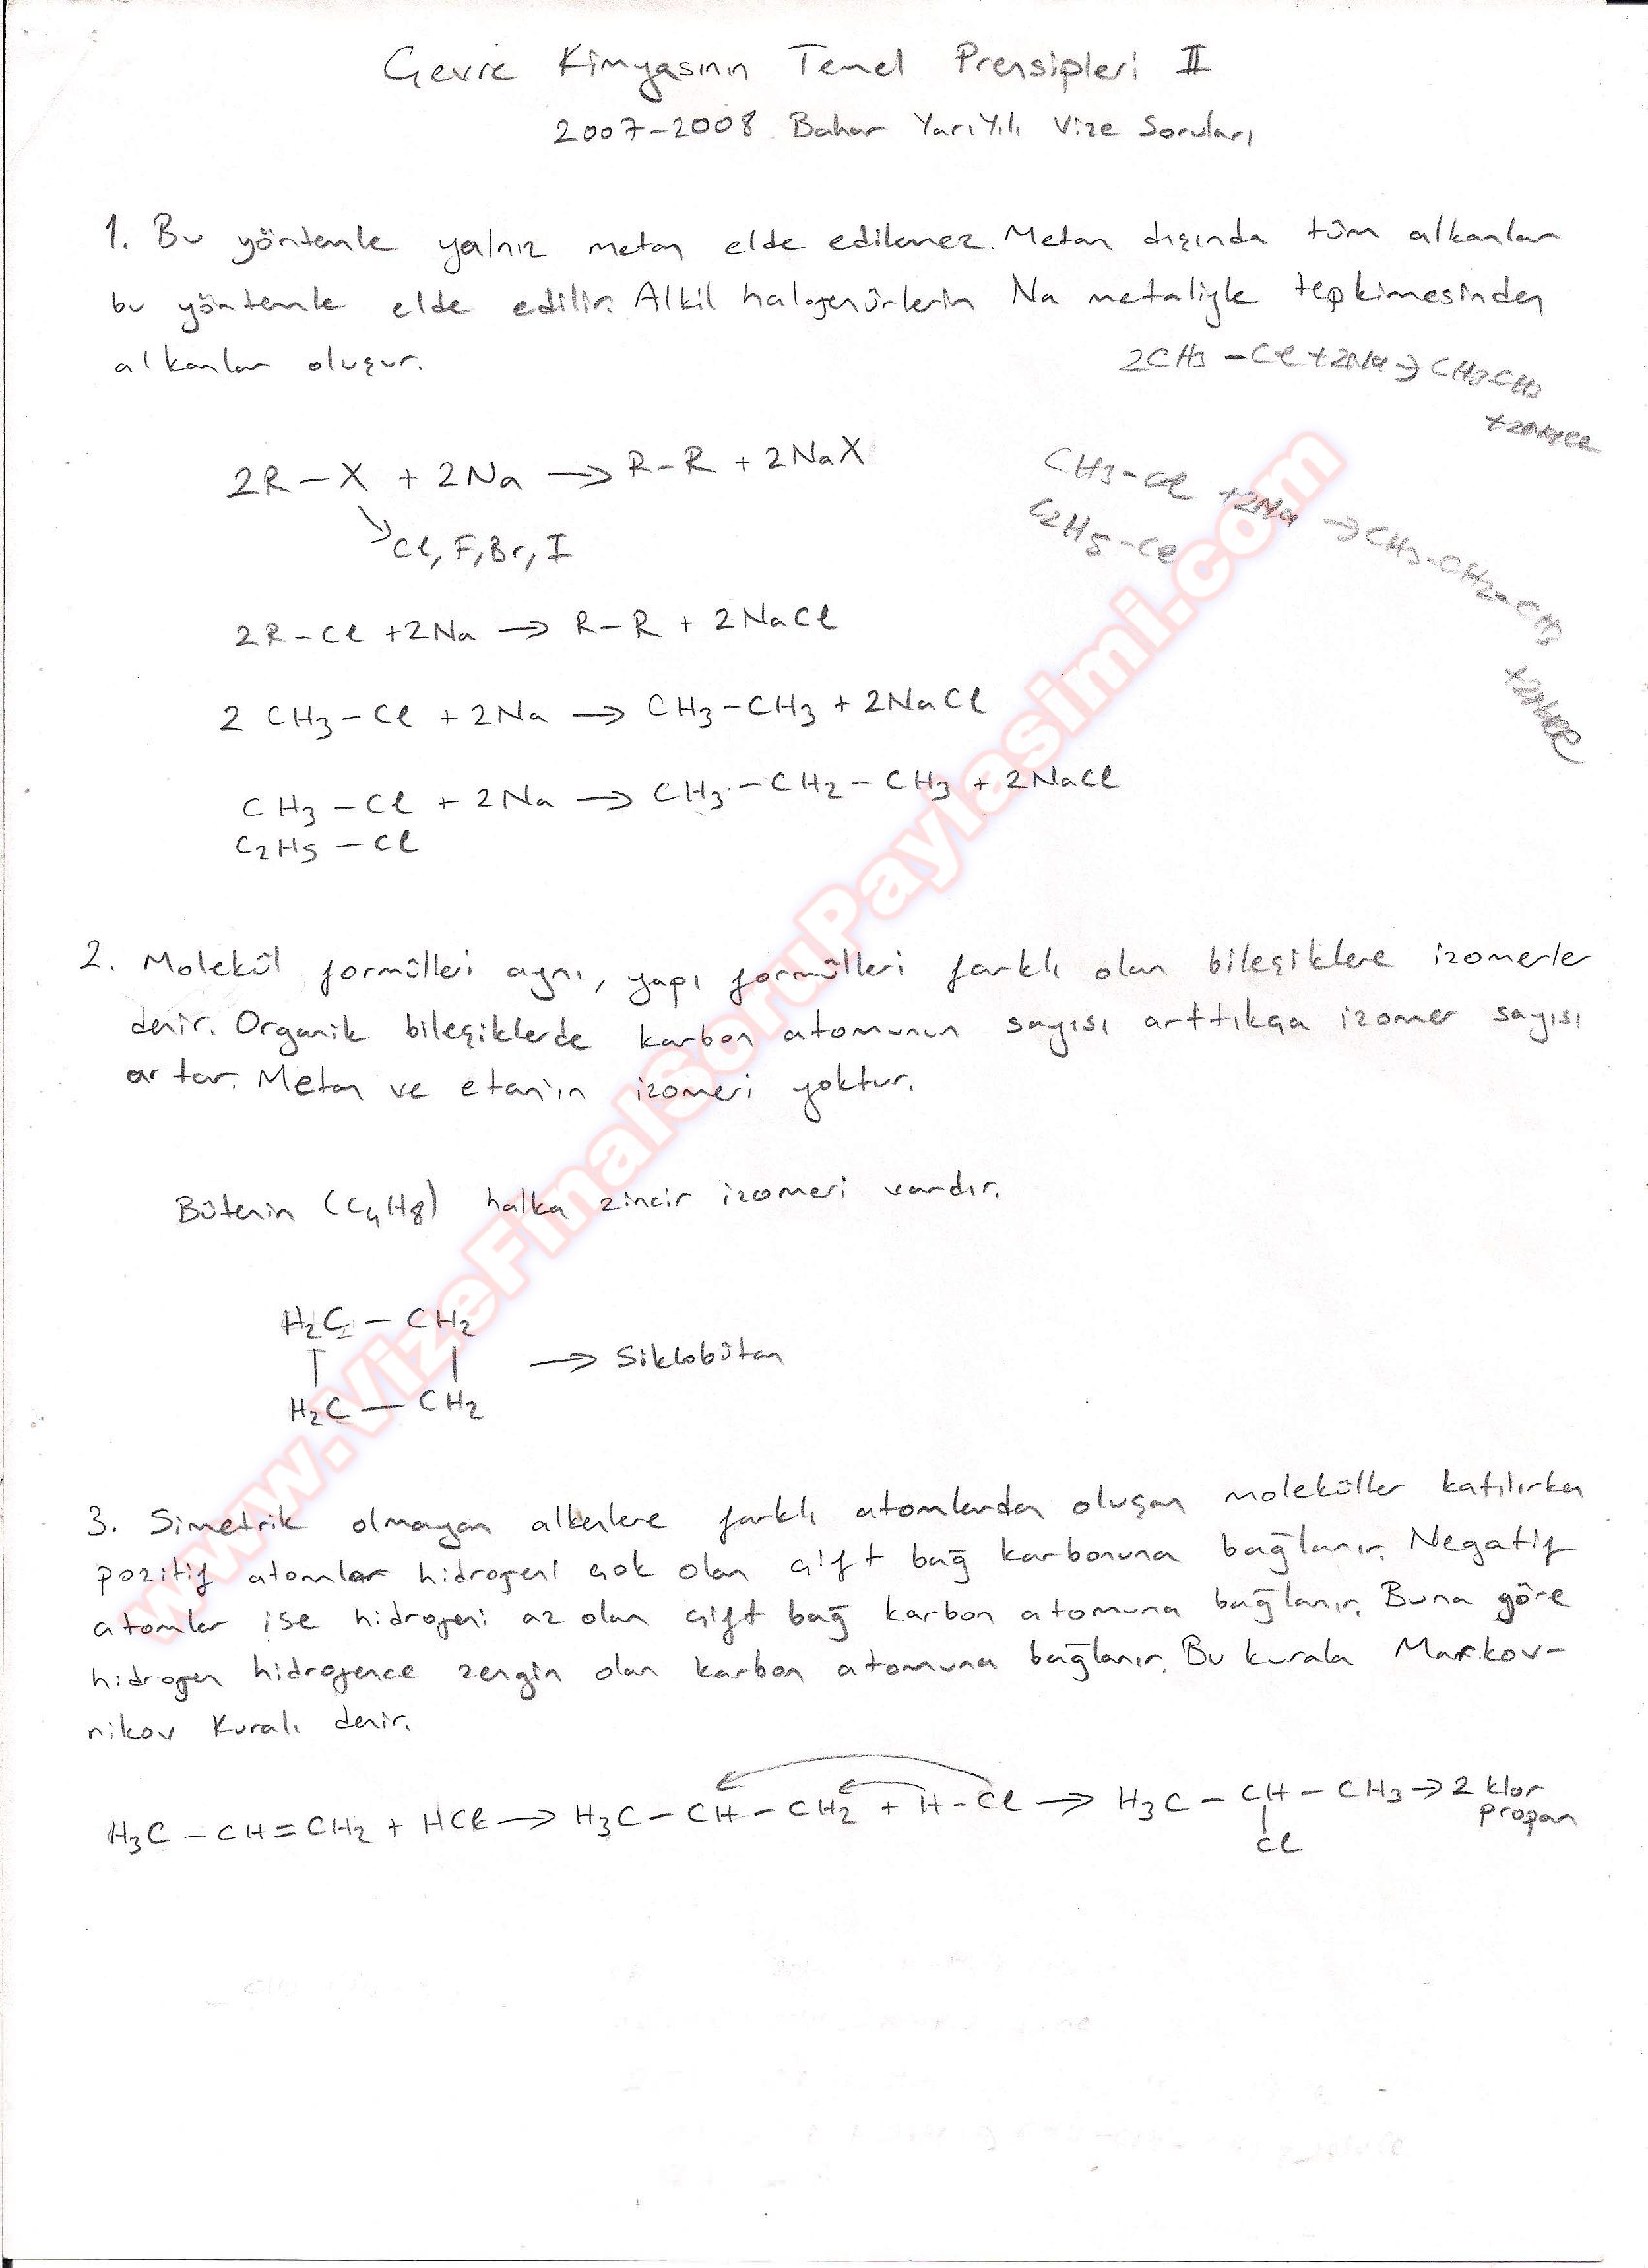 Çevre Kimyasının Temel Prensipleri II
2007-2008 Bahar Yarıyılı Vize Soruları
1. Bu yöntemle yalnız metan elde edilemez. Metan dışında tüm alkanlar
bu yöntemle elde edilir. Alkil halojenürlerin Na metaliyle tepkimesinden
alkanlar oluşur.
2CH3 - Cl + 2Na → CH3CH3
+ 2NaCl
2R - X + 2Na → R-R + 2NaX
Cl, F, Br, I
CH3-Cl + 2Na → CH3-CH2-CH3
C2H5-Cl
+ 2NaCl
2R-Cl + 2Na → R-R + 2NaCl
2 CH3-Cl + 2Na → CH3-CH3 + 2NaCl
CH3-Cl + 2Na → CH3-CH2-CH3 + 2NaCl
C2H5-Cl
2. Molekül formülleri aynı, yapı formülleri farklı olan bileşiklere izomerler
denir. Organik bileşiklerde karbon atomunun sayısı arttıkça izomer sayısı
artar. Metan ve etan'ın izomeri yoktur.
Bütenin (C4H8) halka zincir izomeri vardır.
H2C - CH2
| | → Siklobütan
H2C - CH2
3. Simetrik olmayan alkenlere farklı atomlardan oluşan moleküller katılırken
pozitif atomlar hidrojeni çok olan çift bağ karbonuna bağlanır. Negatif
atomlar ise hidrojeni az olan çift bağ karbon atomuna bağlanır. Buna göre
hidrojen hidrojence zengin olan karbon atomuna bağlanır. Bu kurala Markov-
nikov Kuralı denir.
H3C - CH = CH2 + HCl → H3C - CH - CH2 + H - Cl → H3C - CH - CH3 → 2 klor
Cl propan
www.VizeFinalSoruPaylasimi.com